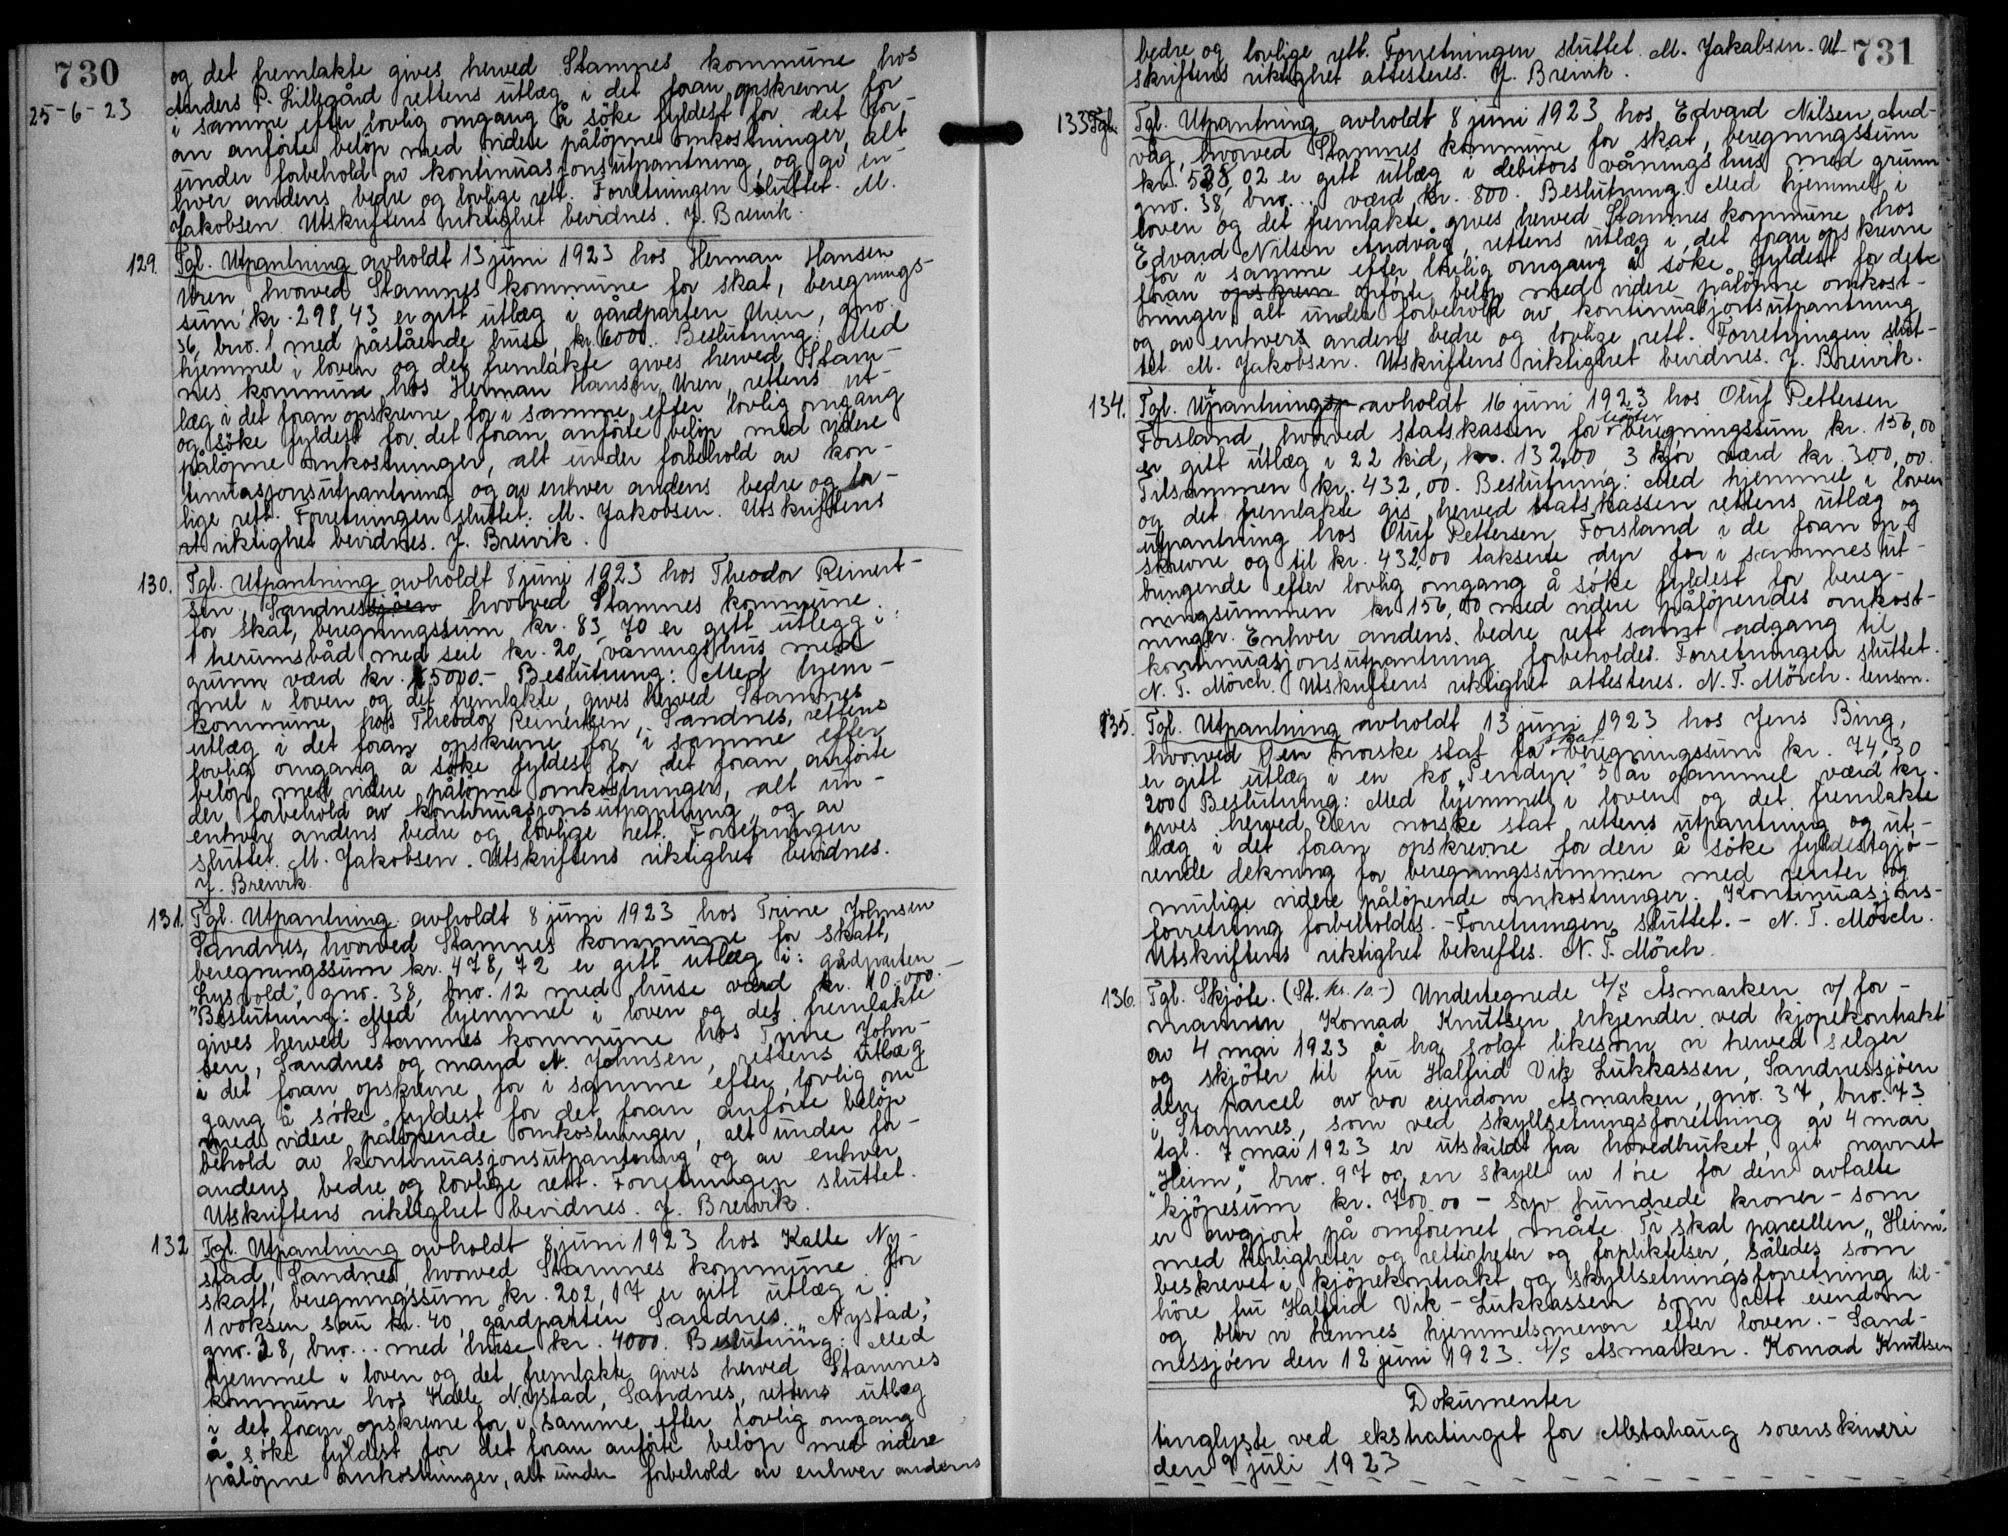 730
og det fremlakte gives herved Stamnes kommune hos
25-6-23
Anders P. Lillegård rettens utlæg i det foran opskrevne for
i samme efter lovlig omgang å söke fyldest for det for-
an anförte belöp med videre pålöpne omkostninger, alt
under forbehold av kontinuasjonsutpantning og av en-
hver andens bedre og lovlige rett. Forretningen sluttet. M.
Jakobsen Utskriftens riktighet bevidnes. J. Breivik.
129. Tgl. Utpantning avholdt 13 juni 1923 hos Herman Hansen
Uren, hvorved Stamnes kommune for skat, beregnings-
sum kr. 298,43 er gitt utlæg i gårdparten Uren, gno.
36, bno. 1 med påstående huse, kr. 6000. Beslutning: Med
hjemmel i loven og det fremlakte gives herved Stam-
nes kommune hos Herman Hansen Uren, rettens ut-
læg i det foran opskrevne for i samme efter lovlig omgang
og söke fyldest for det foran anförte belöp med videre
pålöpne omkostninger, alt under forbehold av kon-
tinuasjonsutpantning og av enhver andens bedre og lov-
lige rett. Forretningen sluttet. M. Jakobsen. Utskriftens
riktighet bevidnes. J. Breivik.
130. Tgl. Utpantning avholdt 8 juni 1923 hos Theodor Reinert-
sen, Sandnessjöen hvorved Stamnes kommune
for skat, beregningssum kr. 83,70 er gitt utlegg i:
1 herumsbåd med seil kr. 20, våningshus med
grunn værd kr. 5000.- Beslutning: Med hjem-
mel i loven og det fremlakte, gives herved Stamnes
kommune hos Theodor Reinertsen, Sandnes, rettens
utlæg i det foran opskrevne for i samme efter
lovlig omgang å söke fyldest for det foran anförte
belöp med videre pålöpne omkostninger, alt un-
der forbehold av kontinuasjonsutpantning, og av
enhver andens bedre og lovlige rett. Forretningen
sluttet. M. Jakobsen. Utskriftens riktighet bevidnes.
J. Breivik.
131. Tgl. Utpantning avholdt 8 juni 1923 hos Trine Johnsen
Sandnes, hvorved Stamnes kommune for skatt,
beregningssum kr. 478,72 er gitt utlæg i: gårdparten
"Lysvold", gno. 38, bno. 12 med huse værd kr. 10.000.-
Beslutning: Med hjemmel i loven og det fremlakte
gives herved Stamnes kommune hos Trine John-
sen, Sandnes og mand N. Johnsen, rettens utlæg
i det foran opskrevne for i samme efter lovlig om
gang å söke fyldest for det foran anförte belöp
med videre pålöpende omkostninger, alt under for-
behold av kontinuasjonsutpantning og av enhver
andens bedre og lovlige rett. Forretningen sluttet.
Utskriftens riktighet bevidnes. J. Breivik.
132 Tgl. Utpantning avholdt 8 juni 1923 hos Kalle Ny-
stad, Sandnes, hvorved Stamnes kommune for
skatt, beregningssum kr. 202,17 er gitt utlæg i:
1 voksen sau kr. 40, gårdparten Sandnes "Nystad",
gno. 38, bno... med huse kr. 4000. Beslutning: Med
hjemmel i loven og det fremlakte gives herved Stamnes
kommune hos Kalle Nystad, Sandnes, rettens utlæg
i det foran opskrevne for i samme efter lovlig omgang
å söke fyldest for det foran anförte belöp med videre
pålöpne omkostninger, alt under forbehold av enhver andens
731
bedre og lovlige rett. Forretningen sluttet. M. Jakobsen. Ut-
skriftens riktighet attesteres. J. Breivik.
133 Tgl. Tgl. Utpantning avholdt 8 juni 1923 hos Edvard Nilsen And-
våg, hvorved Stamnes kommune for skat, beregningssum
kr. 538,02 er gitt utlæg i debitors våningshus med grunn
gno. 38, bno... værd kr. 800. Beslutning. Med hjemmel i
loven og det fremlakte gives herved Stamnes kommune hos
Edvard Nilsen Andvåg, rettens utlæg i det foran opskrevne
for i samme efter lovlig omgang å söke fyldest for det
foran opskrevn anförte belöp med videre pålöpne omkost-
ninger, alt under forbehold av kontinuasjonsutpantning
og av enhvers andens bedre og lovlige rett. Forretningen slut-
tet. M. Jakobsen. Utskriftens riktighet bevidnes. J. Breivik.
134. Tgl. Utpantning avholdt 16 juni 1923 hos Oluf Pettersen
Forsland, hvorved statskassen for böter beregningssum kr. 156,00
er gitt utlæg i 22 kid, kr. 132,00 3 kjör værd kr. 300,00.
Tilsammen kr. 432,00. Beslutning: Med hjemmel i loven
og det fremlakte gis herved statskassen rettens utlæg og
utpantning hos Oluf Pettersen, Forsland i de foran op-
skrevne og til kr. 432,00 takserte dyr for i sammes ut-
bringende efter lovlig omgang å söke fyldest for bereg-
ningsummen kr. 156,00 med videre pålöpendes omkost-
ninger. Enhver andens bedre rett samt adgang til
kontinuasjonsutpantning forbeholdes. Forretningen sluttet.
N. T. Mörch. Utskriftens riktighet attesteres. N. T. Mörch. lensm.
135. Tgl. Utpantning avholdt 13 juni 1923 hos Jens Bing,
hvorved Den norske stat for skat beregningssum kr. 74,30
er gitt utlæg i en ko "Pendyr" 5 år gammel værd kr.
200 Beslutning: Med hjemmel i loven og det fremlakte
gives herved Den norske stat rettens utpantning og ut-
læg i det foran opskrevne for den å söke fyldestgjö-
rende dekning for beregningssummen med renter og
mulige videre pålöpende omkostninger. Kontinuasjons-
forretning forbeholdes. - Forretningen sluttet. - N. T. Mörch.
Utskriftens riktighet bekreftes. N. T. Mörch.
136. Tgl. Skjöte. (St. kr. 10.-) Undertegnede A/S Åsmarken v/ for-
mannen Konrad Knutsen erkjender ved kjöpekontrakt
av 4 mai 1923 å ha solgt likesom vi herved selger
og skjöter til fru Halfrid Vik Lukkassen, Sandnessjöen
den parcel av vor eiendom Åsmarken, gno. 37, bno. 73
i Stamnes, som ved skyllsetningsforretning av 4 mai
tgl. 7 mai 1923 er utskildt fra hovedbruket, git navnet
"Heim", bno. 97 og en skyll av 1 öre for den avtalte
kjöpesum kr. 700.00 - syv hundrede kroner - som
er avgjort på omforenet måte. Ti skal parcellen "Heim"
med herligheter og rettigheter og forpliktelser, således som
beskrevet i kjöpekontrakt og skyllsetningsforretning til-
höre fru Halfrid Vik - Lukkassen som rett eiendom
og blir vi hennes hjemmelsmenn efter loven. - Sand-
nessjöen den 12 juni 1923. A/S Åsmarken. Konrad Knutsen
Dokumenter
tinglyste ved ekstratinget for Alstahaug sorenskriveri
den 9 juli 1923